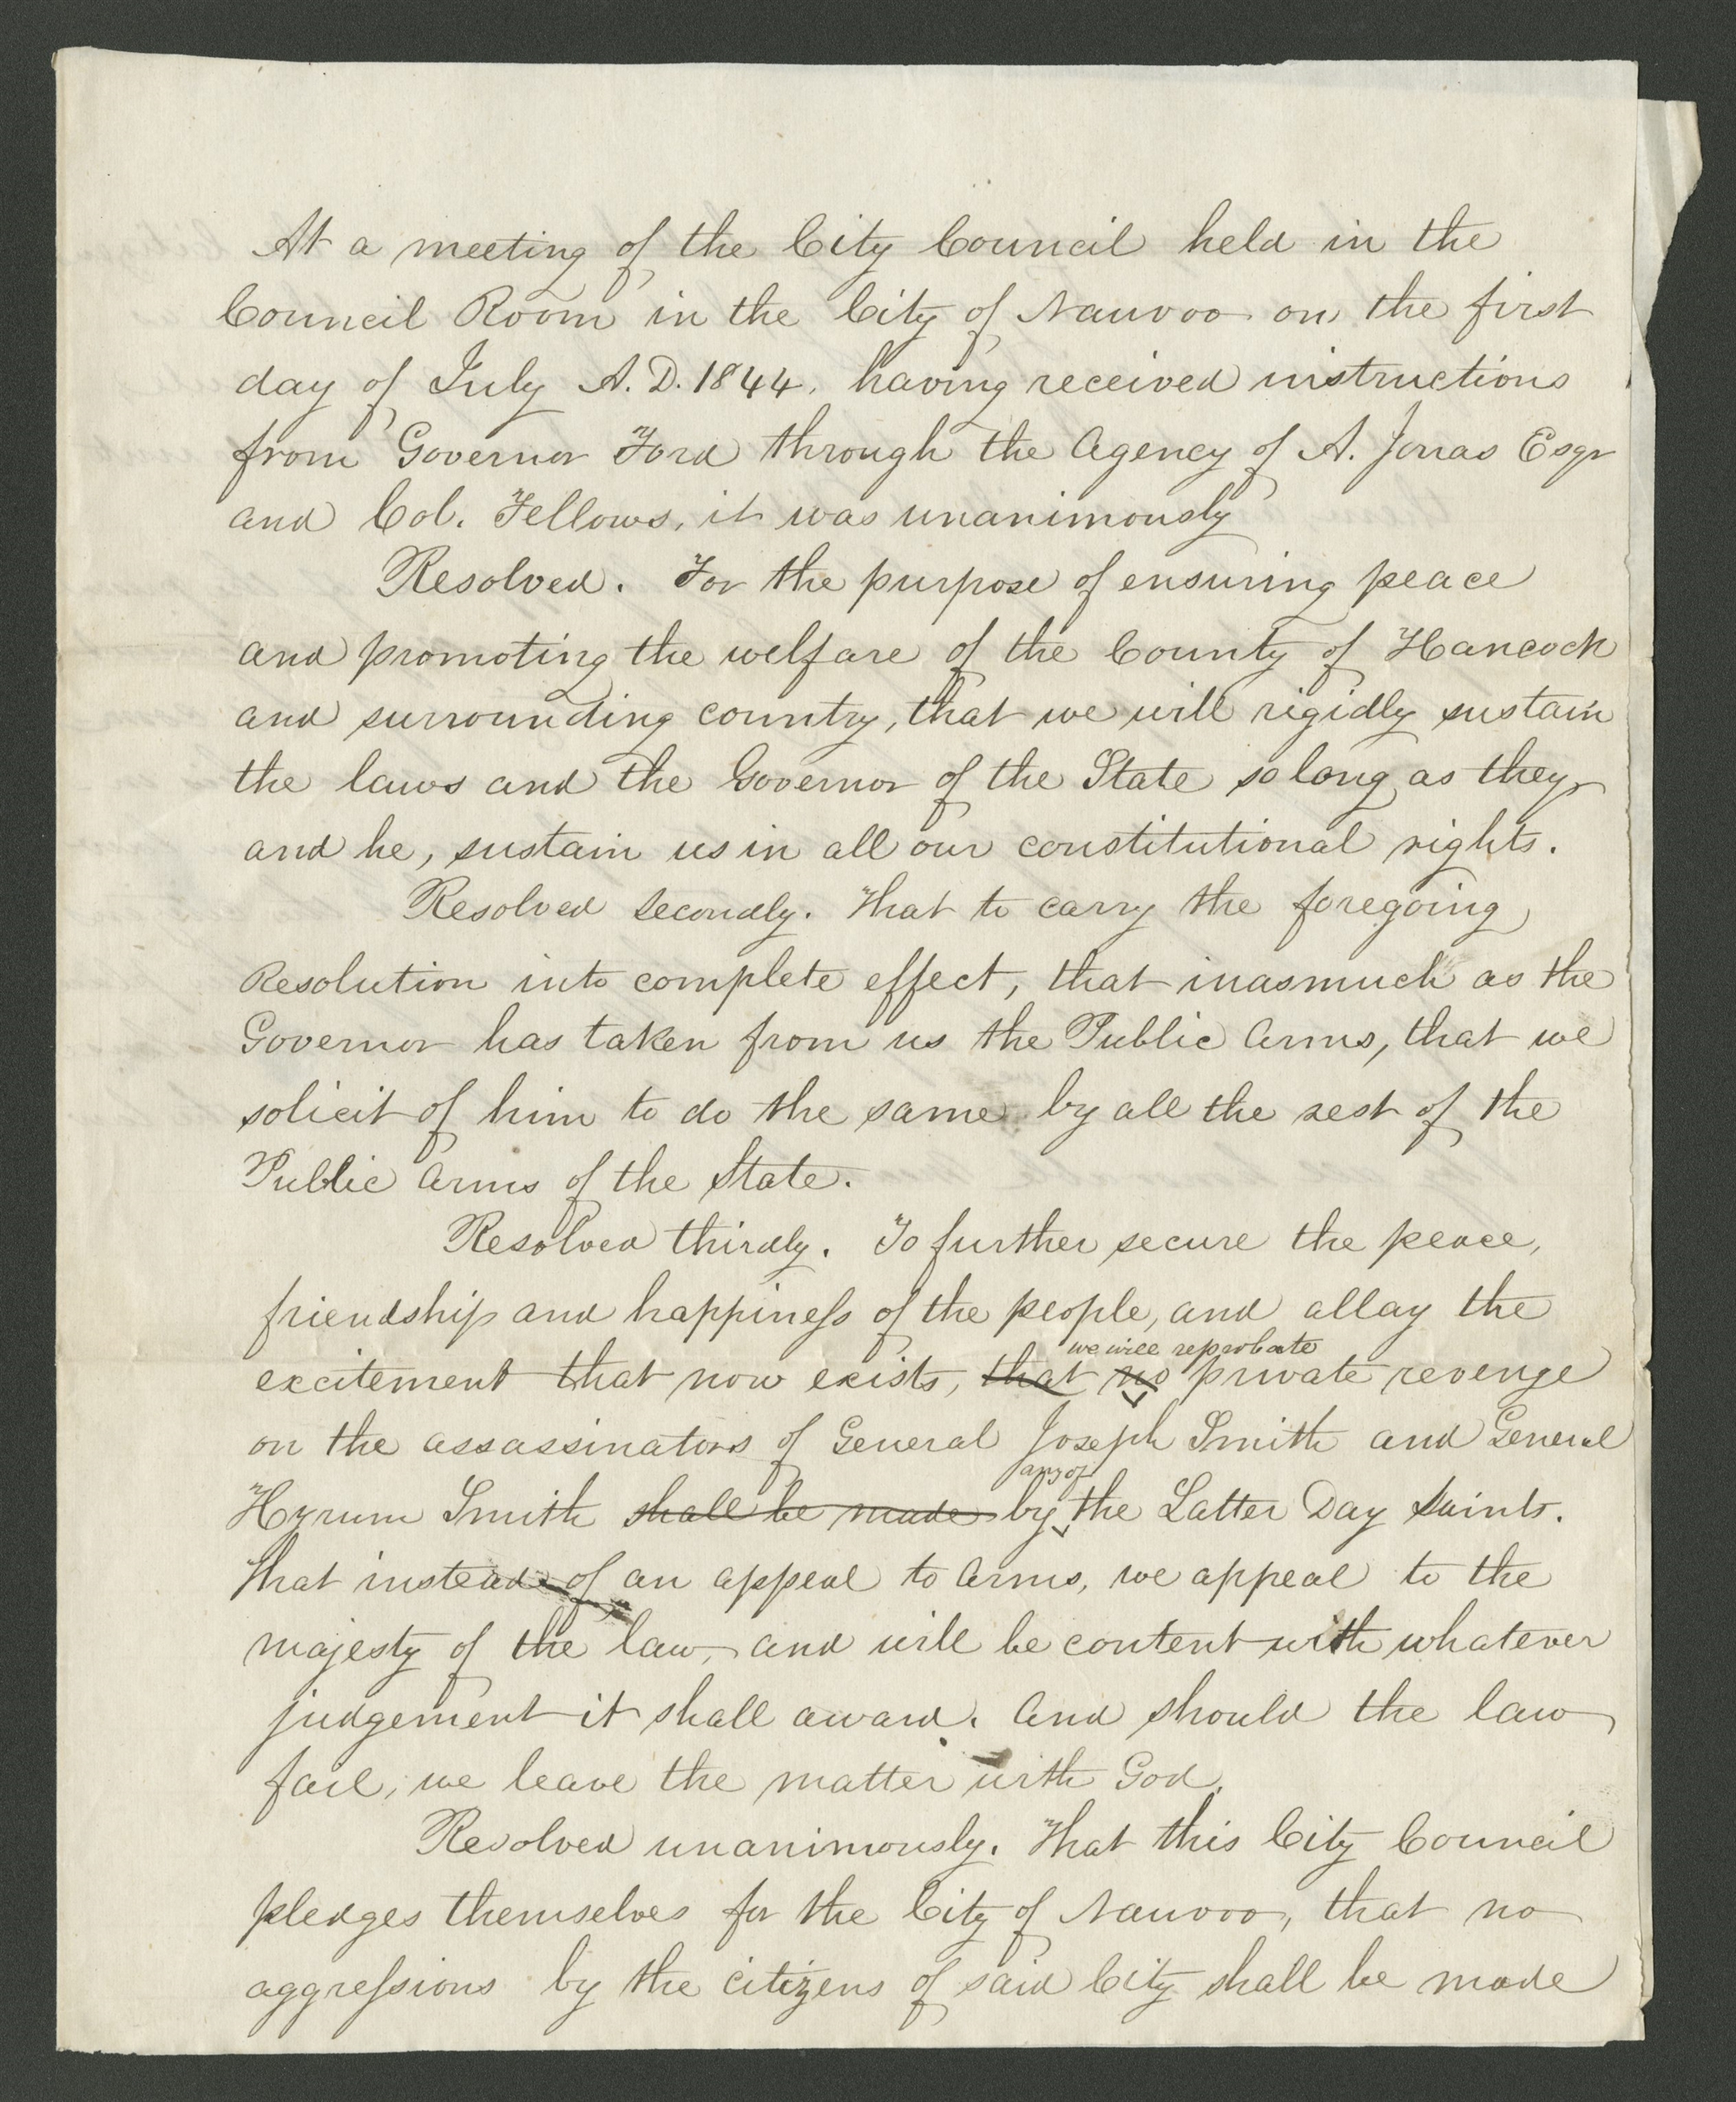 At a meeting of the City Council held in the
Council Room in the City of Nauvoo on the first
day of July A.D. 1844. having received instructions
from Governor Ford through the Agency of A. Jonas Esqr
and Col. Fellows, it was unanimously
Resolved. For the purpose of ensuring peace
and promoting the welfare of the County of Hancock
and surrounding country, that we will rigidly sustain
the laws and the Governor of the State so long as they,
and he, sustain us in all our constitutional rights.
Resolved secondly. That to carry the foregoing
Resolution into complete effect, that inasmuch as the
Governor has taken from us the Public Arms, that we
solicit of him to do the same by all the rest of the
Public Arms of the State.
Resolved thirdly. To further secure the peace,
friendship and happiness of the people, and allay the
we will reprobate
excitement that now exists, that no private revenge
on the assassinators of General Joseph Smith and General
any of
Hyrum Smith shall be made by the Latter Day Saints.
That instead of an appeal to Arms, we appeal to the
majesty of the law, and will be content with whatever
judgement it shall award. And should the law
fail, we leave the matter with God.
Resolved unanimously. That this City Council
pledges themselves for the City of Nauvoo, that no
aggressions by the citizens of said City shall be made